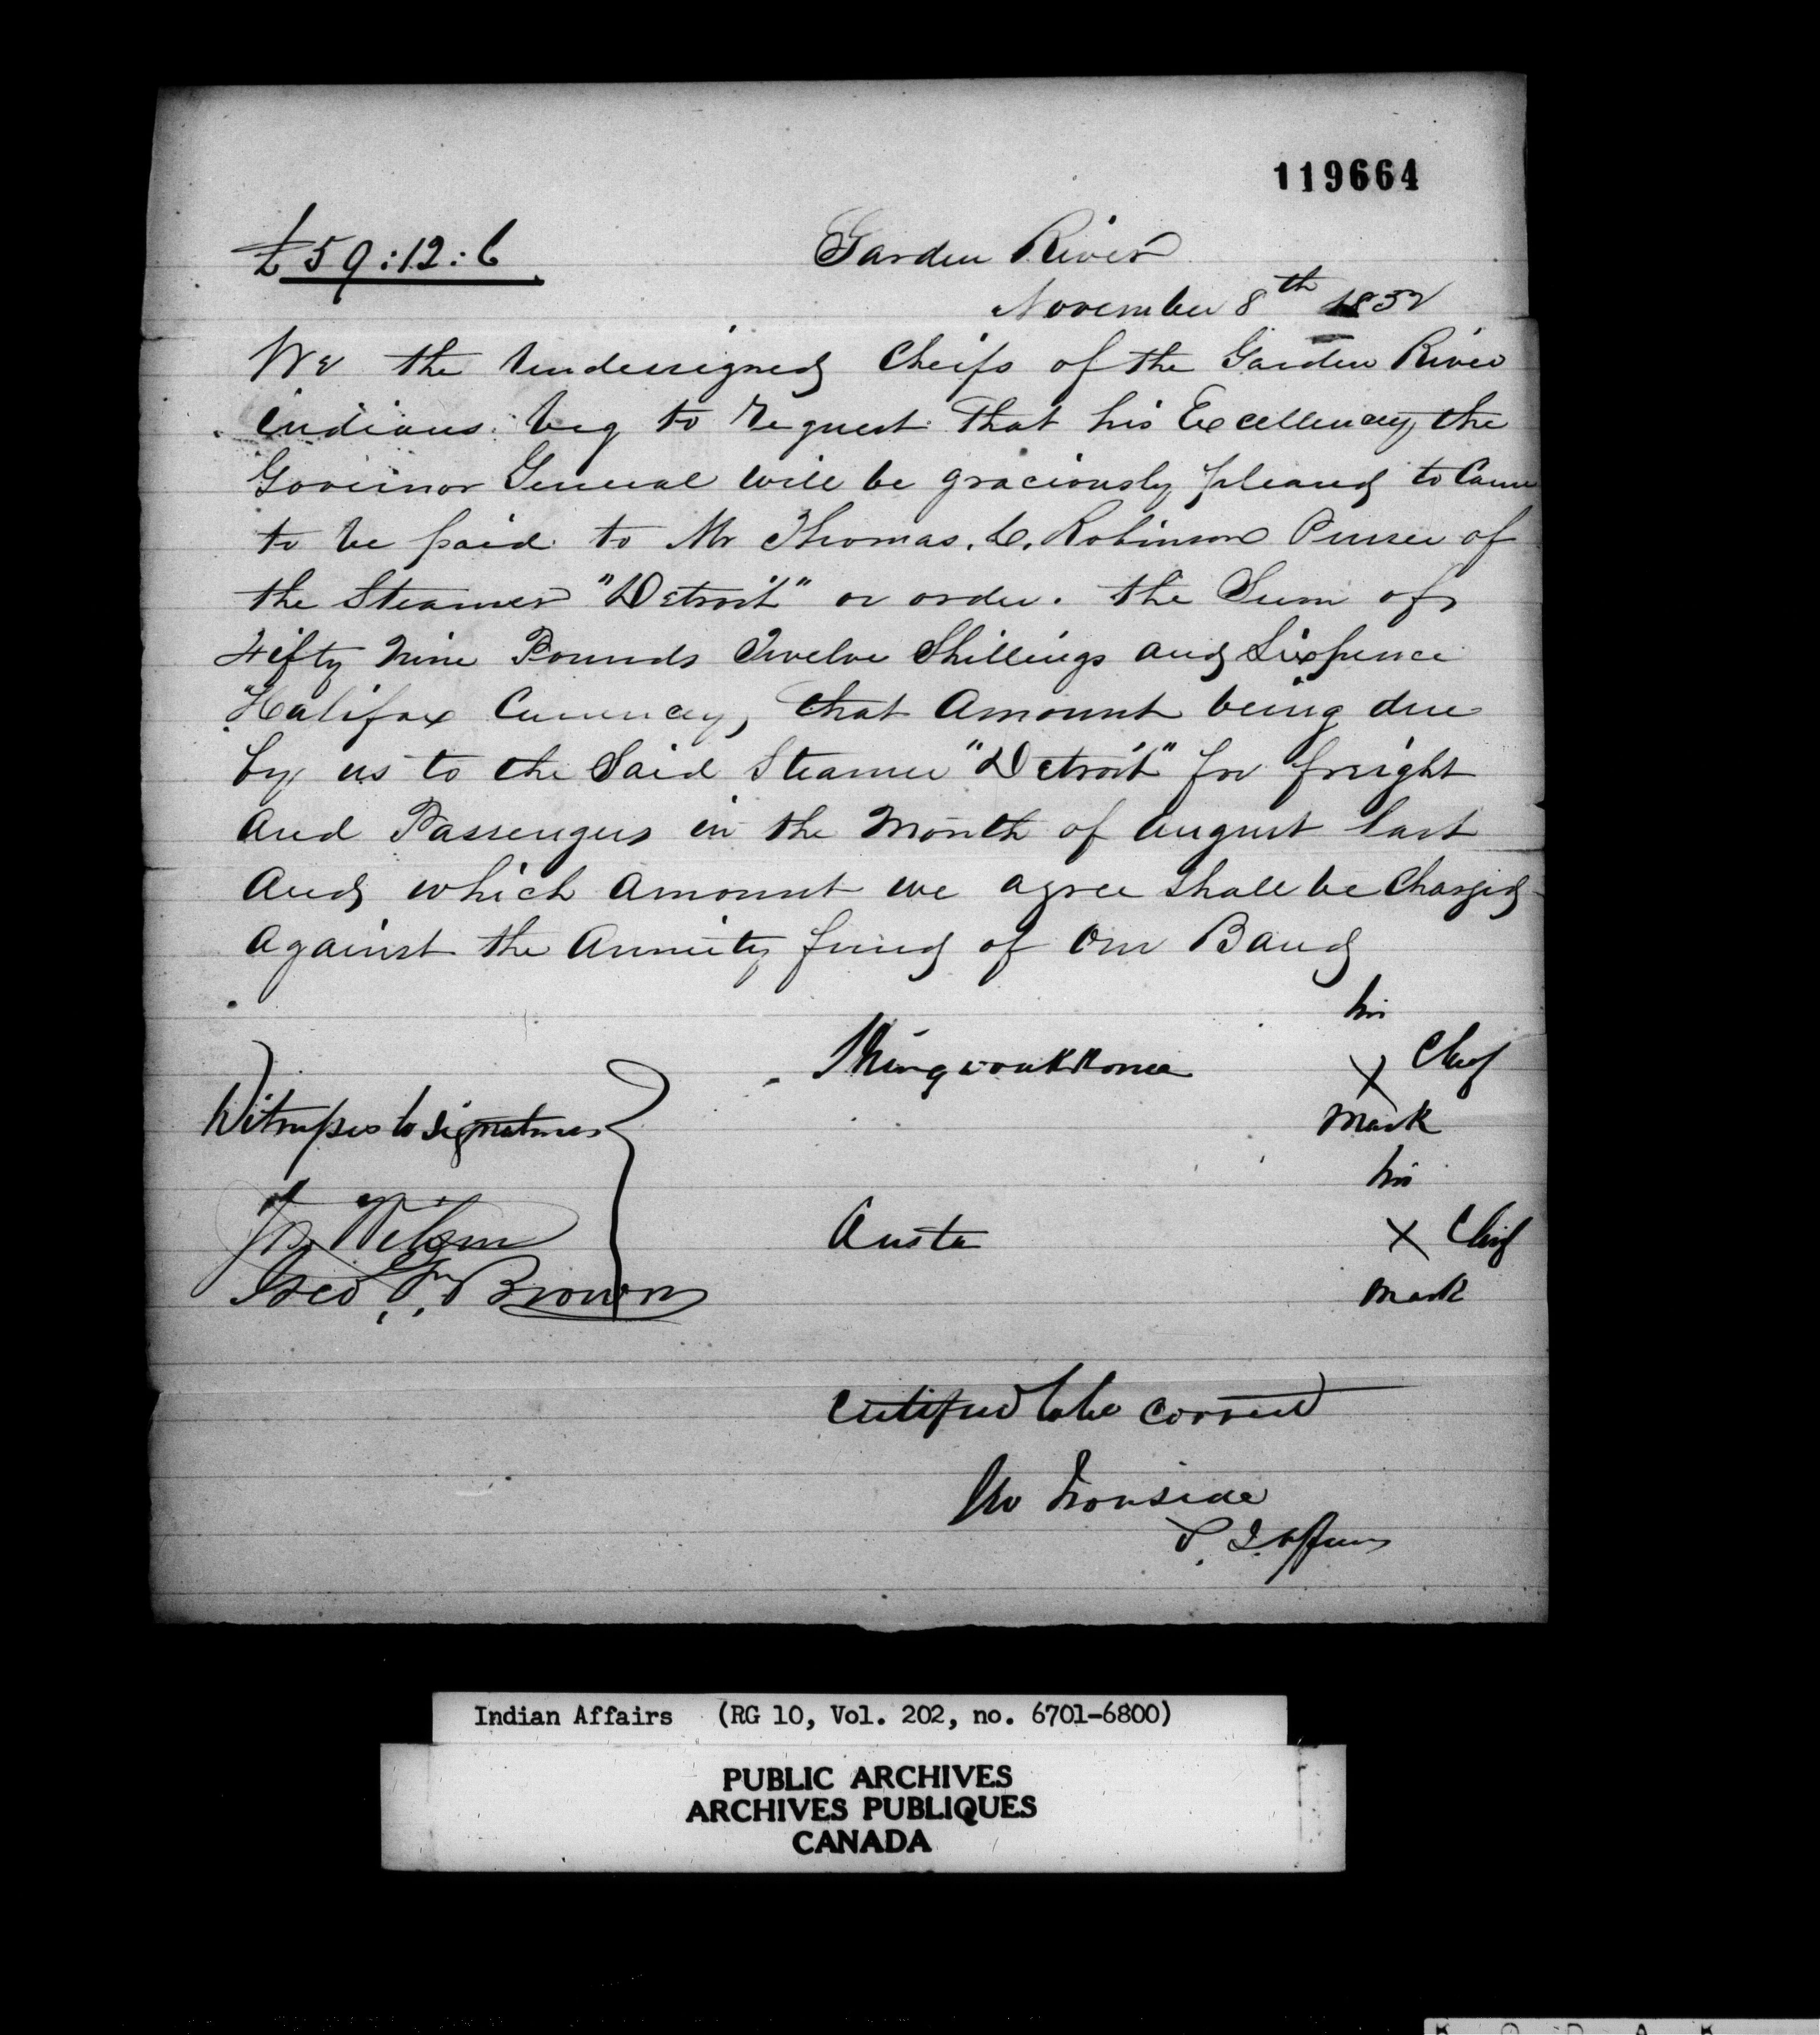 119664
£59:12:6
Garden River
November 8th 1852
We the Undersigned Cheifs of the Garden River
Indians beg to request that his Excellency the
Governor General will be graciously pleased to Cause
to be paid to Mr Thomas. C. Robinson Purser of
the Steamer "Detroit" or order. the Sum of
Fifty Nine Pounds Twelve Shillings and Sixpence
Halifax Currency, that Amount being due
by us to the Said Steamer "Detroit" for freight
And Passengers in the Month of August last
And which Amount we agree shall be Charged
Against the Annuity fund of Our Band
his
Shingwaukkonce X Chief
Mark
Witnesses to signatures
his
Jos. Wilson
Austa X Chief
Geo. Brown
Mark
Certified to be correct
Geo Ironside
S. I. Affairs
Indian Affairs (RG 10, Vol. 202, no. 6701-6800)
PUBLIC ARCHIVES
ARCHIVES PUBLIQUES
CANADA